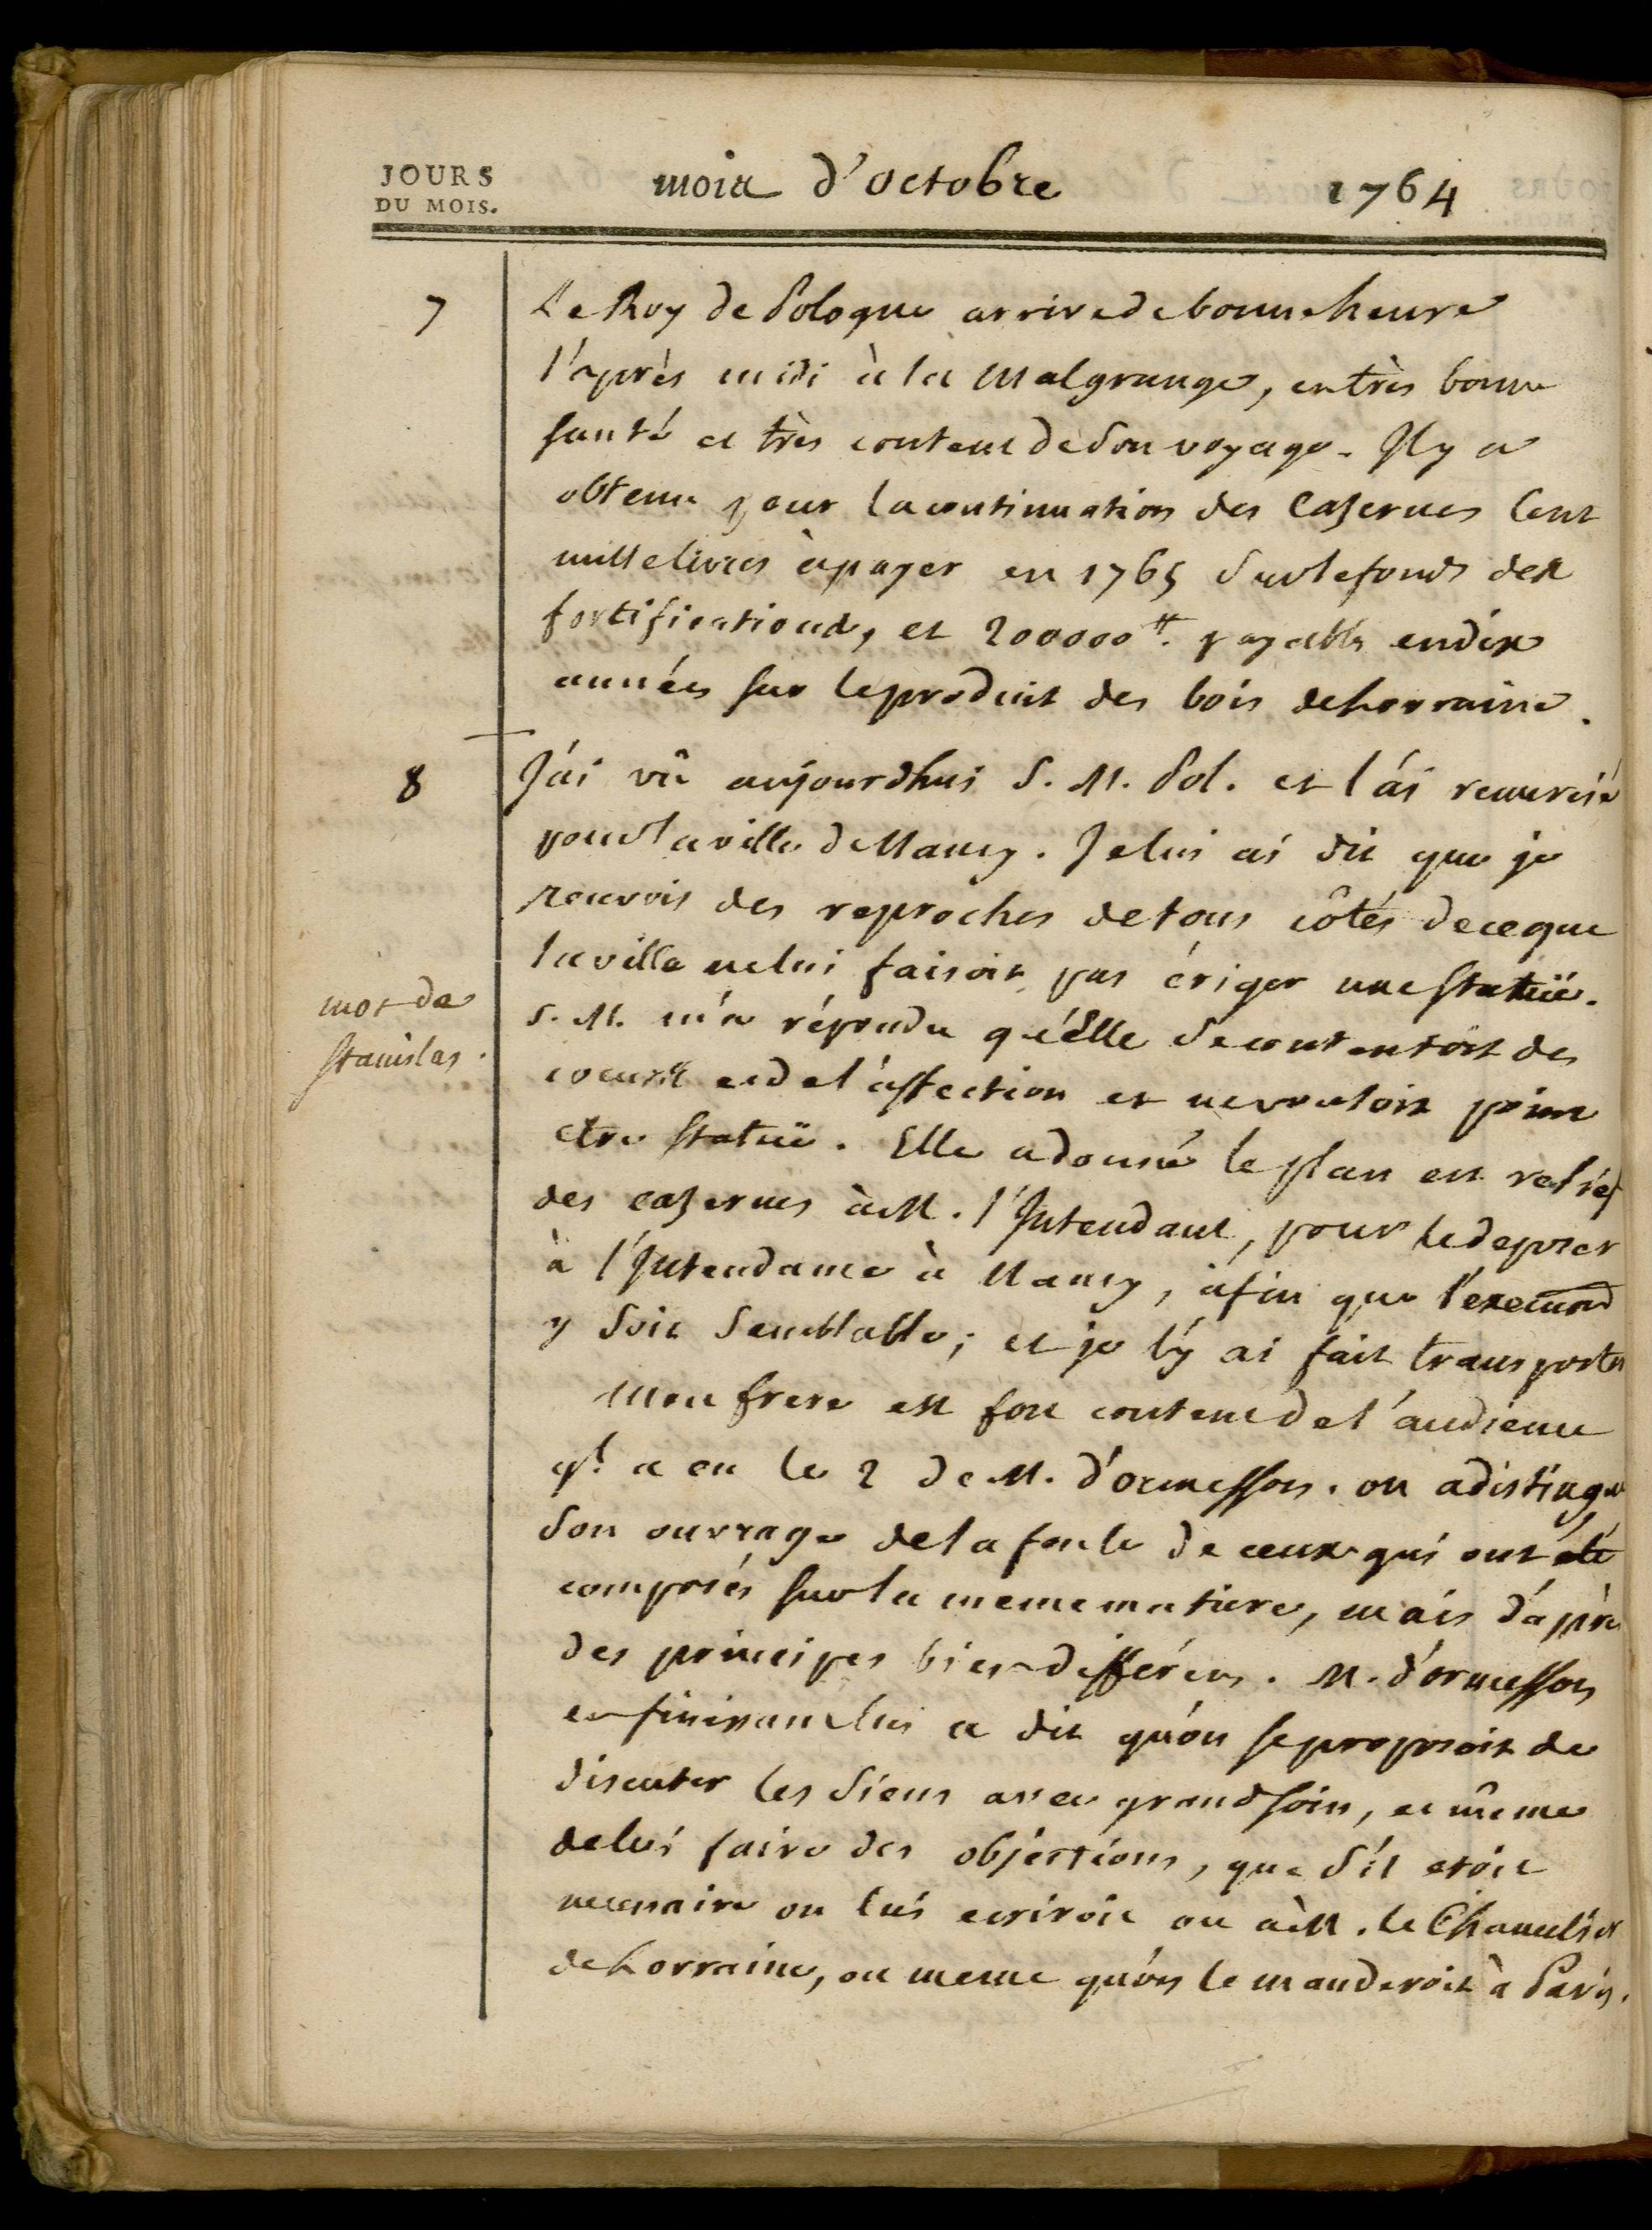 JOURS
DU MOIS.
mois d'octobre 1764
7 Le Roy de Pologne arrive de bonne heure
l'après midi à la Malgrange, en très bonne
santé et très content de son voyage. Il y a
obtenu pour la continuation des Cazernes Cent
mille livres à payer en 1765 sur le fonds des
fortifications, et 200000 ₶. payables en dix
années sur le produit des bois de Lorraine.
8 J'ai vû aujourdhui S. M. Pol. et l'ai remercié
pour la ville de Nancy. Je lui ai dit que je
recevois des reproches de tous côtés de ce que
la ville ne lui faisoit pas ériger une statuë.
mot de
stanislas.
S. M. m'a répondu qu'Elle se contentoit des
coeurs et de l'affection et ne vouloit point
etre statuë. Elle a donné le plan en relief
des cazernes à M. l'Intendant, pour le deposer
à l'Intendance à Nancy, afin que l'execution
y soit semblable; et je l'y ai fait transporter
Mon frere est fort content de l'audience
ql. a eu le 2 de M. d'ormesson. on a distingué
son ouvrage de la foule de ceux qui ont été
composés sur la meme matiere, mais d'après
des principes bien différens. M. d'ormesson
en finissant lui a dit qu'on se proposoit de
discuter les siens avec grand soin, et même
de lui faire des objections, que s'il etoit
necessaire on lui ecriroit ou à M. le Chancelier
de Lorraine, ou meme qu'on le manderoit à Paris.